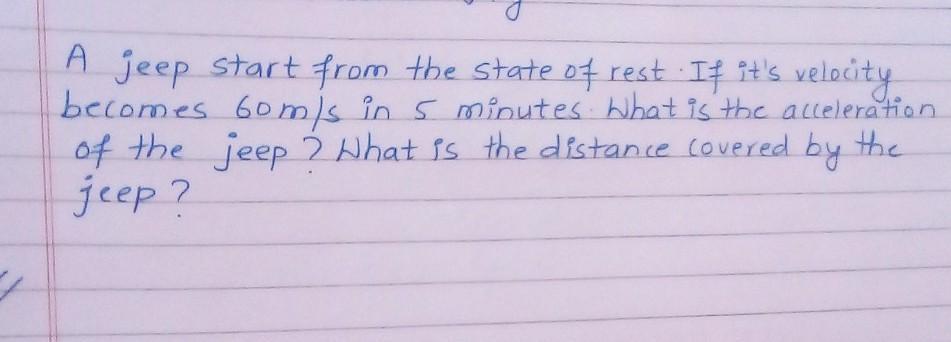 A jeep start from the state of rest. If it's velocity
becomes 60 m/s in 5 minutes. What is the acceleration
of the jeep? What is the distance covered by the
jeep?